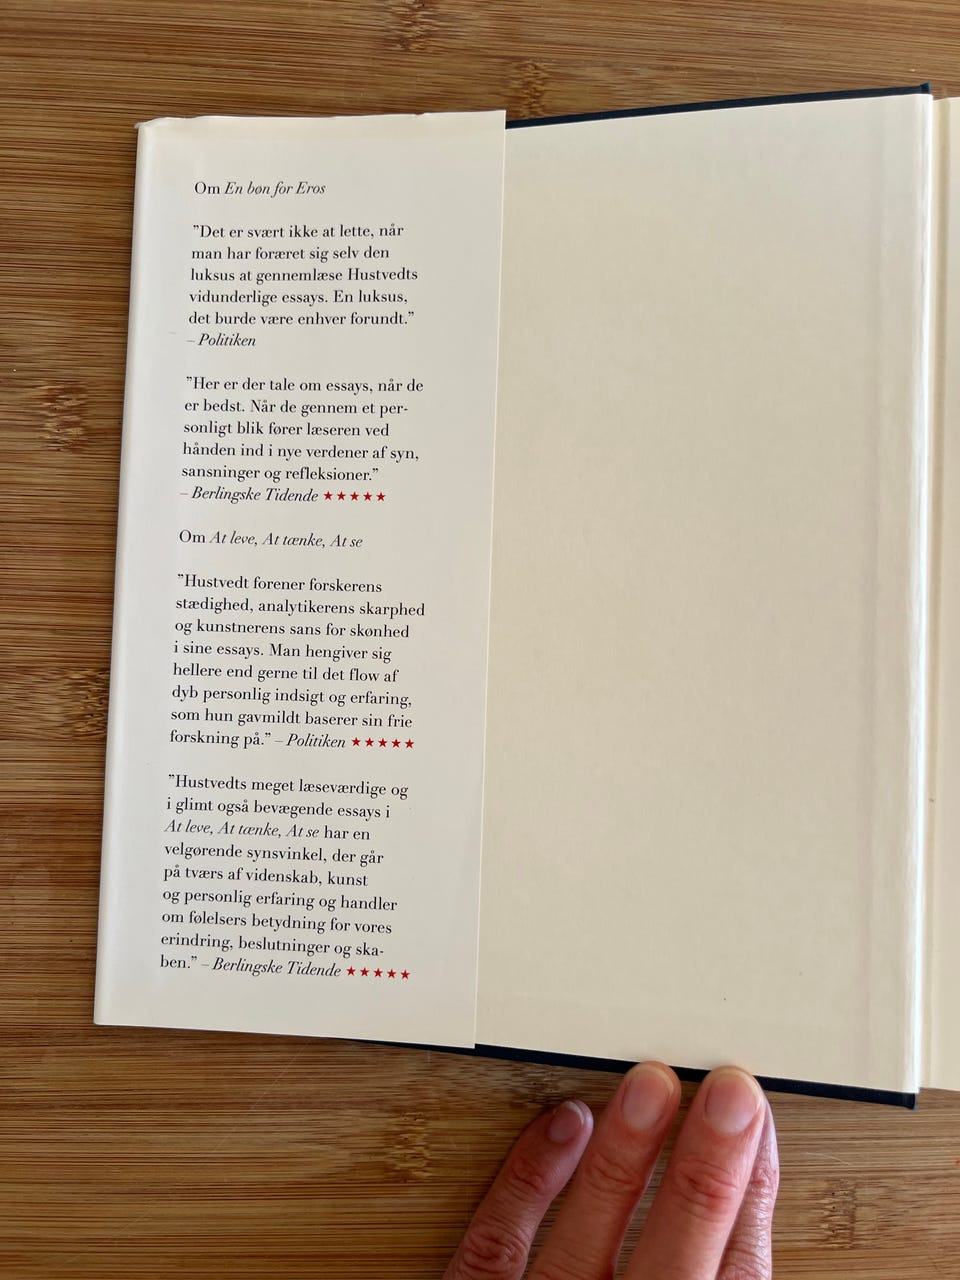 Om En bøn for Eros
”Det er svært ikke at lette, når
man har foræret sig selv den
luksus at gennemlæse Hustvedts
vidunderlige essays. En luksus,
det burde være enhver forundt.”
– Politiken
”Her er der tale om essays, når de
er bedst. Når de gennem et per-
sonligt blik fører læseren ved
hånden ind i nye verdener af syn,
sansninger og refleksioner.”
– Berlingske Tidende ★★★★★
Om At leve, At tænke, At se
”Hustvedt forener forskerens
stædighed, analytikerens skarphed
og kunstnerens sans for skønhed
i sine essays. Man hengiver sig
hellere end gerne til det flow af
dyb personlig indsigt og erfaring,
som hun gavmildt baserer sin frie
forskning på.” – Politiken ★★★★★
”Hustvedts meget læseværdige og
i glimt også bevægende essays i
At leve, At tænke, At se har en
velgørende synsvinkel, der går
på tværs af videnskab, kunst
og personlig erfaring og handler
om følelsers betydning for vores
erindring, beslutninger og ska-
ben.” – Berlingske Tidende ★★★★★